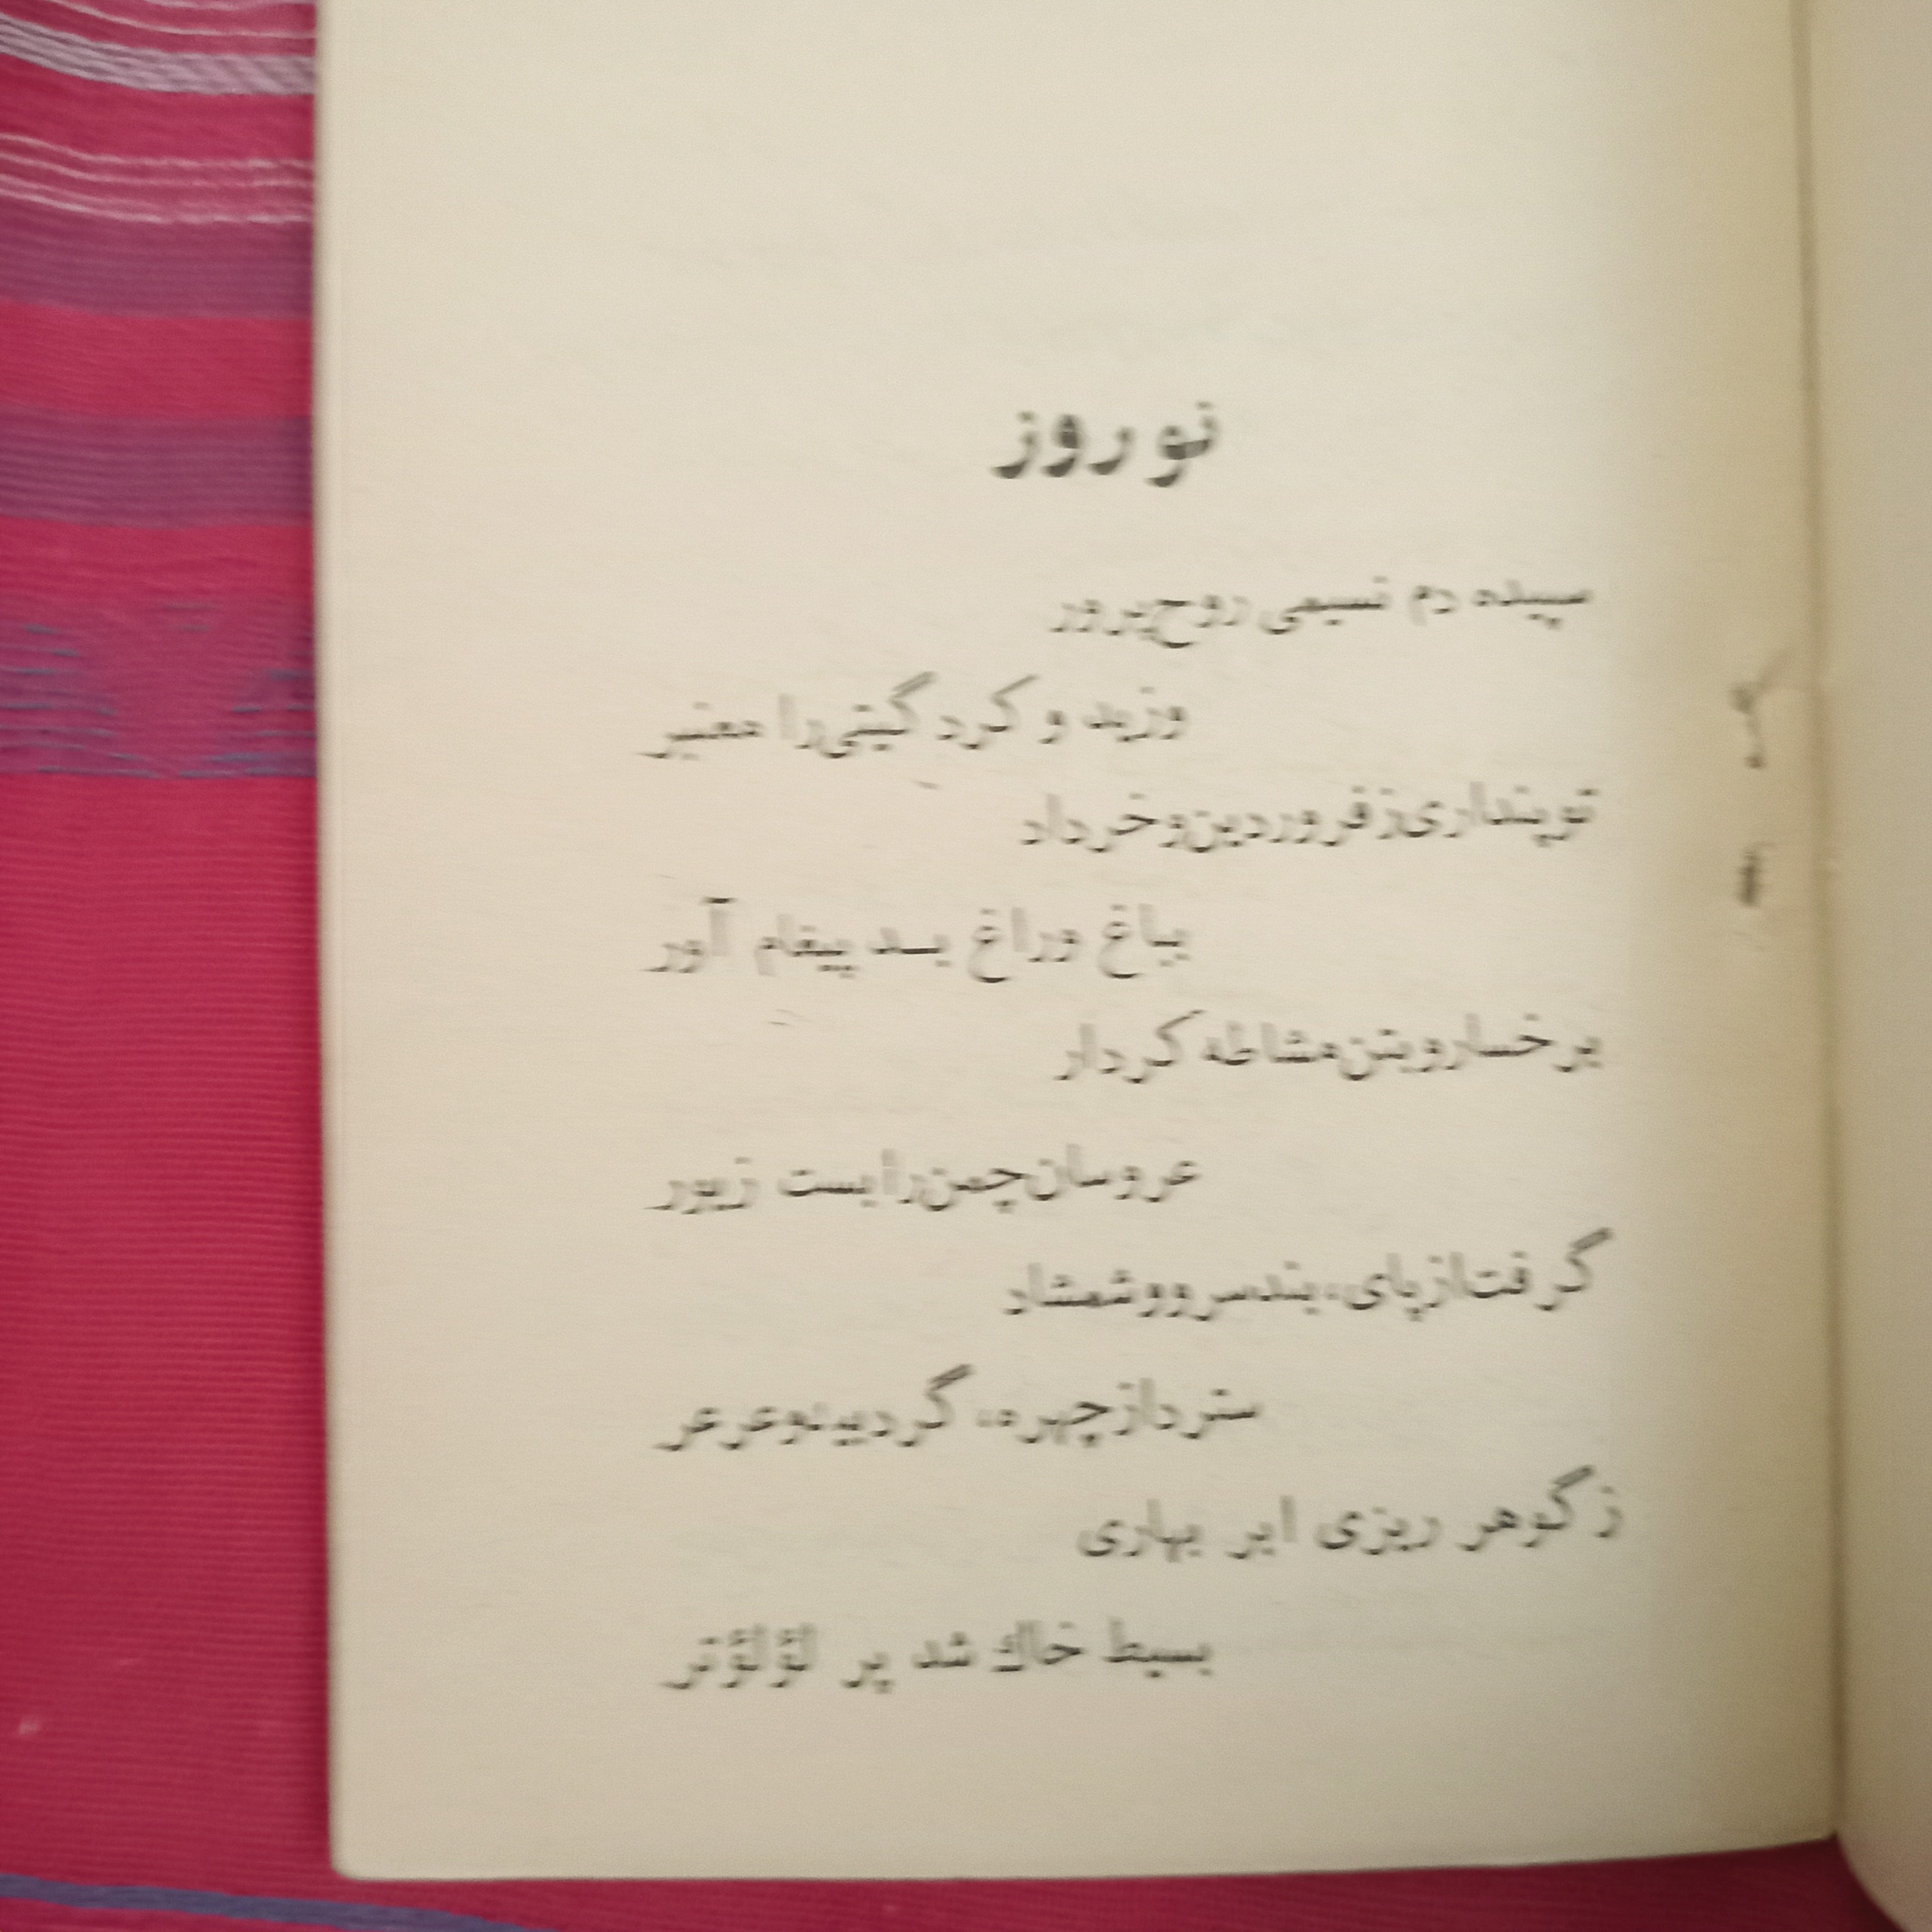 نوروز
سپیده دم نسیمی روح‌پرور
وزید و کرد گیتی‌را معنبر
توپنداری‌زفروردین‌وخرداد
بباغ وراغ بــد پیغام آور
برخساروبتن‌مشاطه کردار
عروسان‌چمن‌رابست زیور
گرفت‌ازپای،بندسرووشمشاد
سترد‌ازچهره، گردبیدوعرعر
ز گوهر ریزی ابر بهاری
بسیط خاك شد پر لؤلؤتر